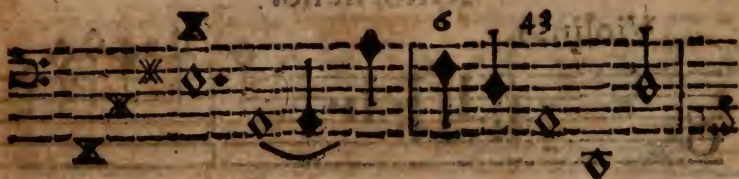 6 43